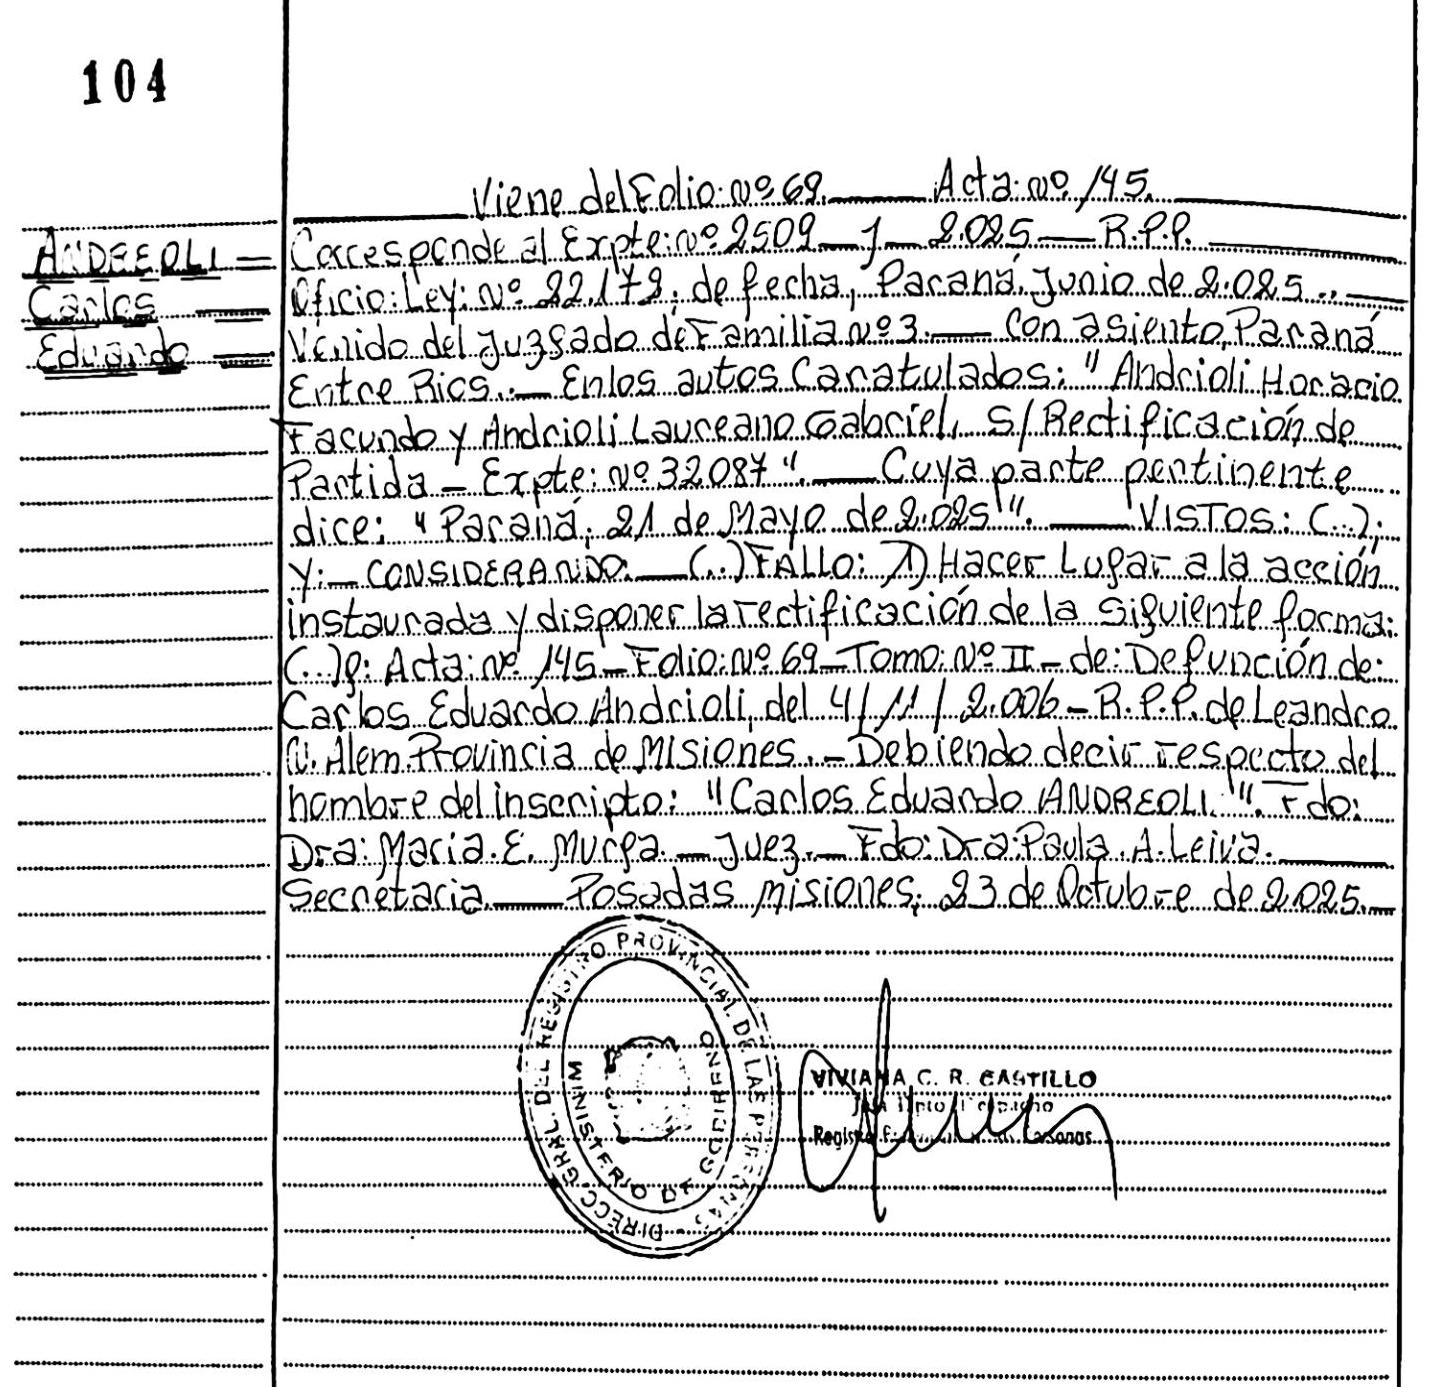 104
Viene del Folio: Nº 69. Acta: nº 145.
ANDREOLI
Carlos
Eduardo
Corresponde al Expte: nº 2509 J 2.025 — R.P.P.
Oficio: Ley: Nº 22.172, de fecha, Paraná, Junio de 2.025 ..
Venido del Juzgado de Familia Nº 3. — Con asiento, Paraná
Entre Rios. — En los autos Caratulados: "Andrioli Horacio
Facundo y Andrioli Laureano Gabriel, S/ Rectificación de
Partida - Expte: Nº 32087". — Cuya parte pertinente
dice: "Paraná, 21 de Mayo de 2.025". — VISTOS: (...);
Y: — CONSIDERANDO: — (..) FALLO: 1) Hacer Lugar a la acción
instaurada y disponer la rectificación de la siguiente forma:
(...) f: Acta: nº 145 - Folio: Nº 69 - Tomo: Nº II - de: Defunción de:
Carlos Eduardo Andrioli, del 4/11/2.006 - R.P.P. de Leandro
N. Alem. Provincia de Misiones. - Debiendo decir respecto del
nombre del inscripto: "Carlos Eduardo ANDREOLI". Fdo:
Dra: Maria. E. Murga. — Juez. — Fdo: Dra: Paula. A. Leiva.
Secretaria — Posadas Misiones; 23 de Octubre de 2.025.
DIRECC. GRAL. DEL REGISTRO PROVINCIAL DE LAS PERSONAS
MINISTERIO DE GOBIERNO
VIVIANA C. R. CASTILLO
Personas